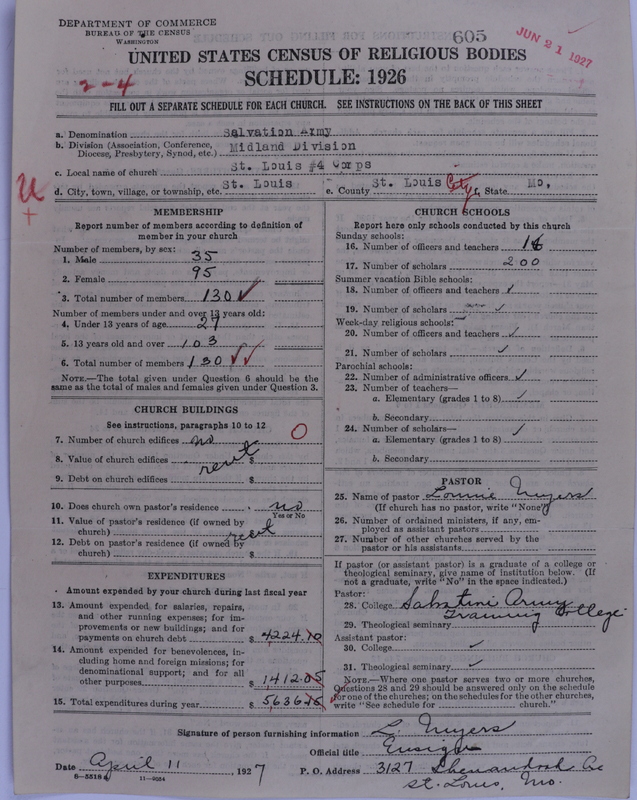 DEPARTMENT OF COMMERCE
BUREAU OF THE CENSUS
WASHINGTON
605
JUN 21 1927
UNITED STATES CENSUS OF RELIGIOUS BODIES
SCHEDULE: 1926
2-4
FILL OUT A SEPARATE SCHEDULE FOR EACH CHURCH. SEE INSTRUCTIONS ON THE BACK OF THIS SHEET
a. Denomination Salvation Army
b. Division (Association, Conference, Diocese, Presbytery, Synod, etc.) Midland Division
c. Local name of church St. Louis #4 Corps
d. City, town, village, or township, etc. St. Louis e. County St. Louis City State Mo,
U
+
MEMBERSHIP
Report number of members according to definition of
member in your church
Number of members, by sex:
1. Male 35
2. Female 95
3. Total number of members 130 ✓
Number of members under and over 13 years old:
4. Under 13 years of age 27
5. 13 years old and over 103
6. Total number of members 130 ✓✓
NOTE.—The total given under Question 6 should be
same as the total of males and females given under Question 3.
CHURCH BUILDINGS
See instructions, paragraphs 10 to 12
7. Number of church edifices no 0
8. Value of church edifices rent $
9. Debt on church edifices $
10. Does church own pastor's residence no
Yes or No
11. Value of pastor's residence (if owned by
church) rent $
12. Debt on pastor's residence (if owned by
church) $
EXPENDITURES
Amount expended by your church during last fiscal year
13. Amount expended for salaries, repairs,
and other running expenses; for im-
provements or new buildings; and for
payments on church debt $ 4224.10
14. Amount expended for benevolences, in-
cluding home and foreign missions; for
denominational support; and for all
other purposes $ 1412.05
15. Total expenditures during year $ 5636.15
CHURCH SCHOOLS
Report here only schools conducted by this church
Sunday schools:
16. Number of officers and teachers 16
17. Number of scholars 200
Summer vacation Bible schools:
18. Number of officers and teachers ✓
19. Number of scholars ✓
Week-day religious schools:
20. Number of officers and teachers ✓
21. Number of scholars ✓
Parochial schools:
22. Number of administrative officers ✓
23. Number of teachers—
a. Elementary (grades 1 to 8) ✓
b. Secondary
24. Number of scholars— ✓
a. Elementary (grades 1 to 8)
b. Secondary
PASTOR
25. Name of pastor Lonnie Myers
(If church has no pastor, write "None")
26. Number of ordained ministers, if any, em-
ployed as assistant pastors
27. Number of other churches served by the
pastor or his assistants
If pastor (or assistant pastor) is a graduate of a college or
theological seminary, give name of institution below. (If
not a graduate, write "No" in the space indicated.)
Pastor:
28. College Army
29. Theological seminary Training College
Assistant pastor:
30. College ✓
31. Theological seminary ✓
NOTE.—Where one pastor serves two or more churches,
Questions 28 and 29 should be answered only on the schedule
for one of the churches; on the schedules for the other churches,
write "See schedule for ............ church."
Signature of person furnishing information L. Myers
Official title Ensign
Date April 11, 1927 P. O. Address 3127 Shenandoah Ave
St. Louis, Mo.
8-5518 a 11-9054